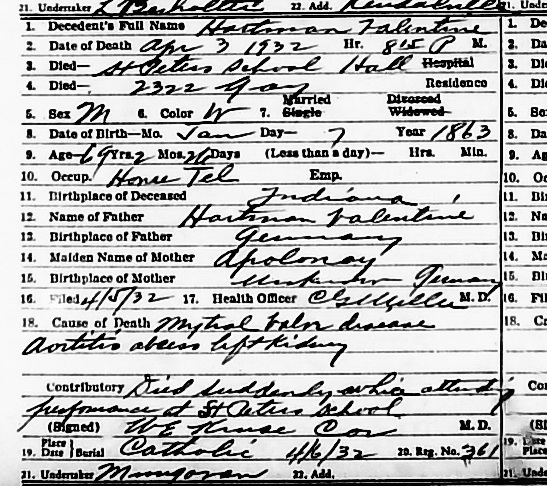 21. Undertaker 22. Add. Kendallville
1. Decedent's Full Name Hartman Valentine
2. Date of Death Apr 3 1932 Hr. 8:15 P M.
3. Died— St Peters School Hall Hospital
4. Died— 2322 Gay Residence
5. Sex M 6. Color W 7. Married Single Divorced Widowed
8. Date of Birth—Mo. Jan Day— 7 Year 1863
9. Age 69 Yrs. 2 Mos. 26 Days (Less than a day)— Hrs. Min.
10. Occup. Home Tel Emp.
11. Birthplace of Deceased Indiana
12. Name of Father Hartman Valentine
13. Birthplace of Father Germany
14. Maiden Name of Mother Apolonay
15. Birthplace of Mother Unknown German
16. Filed 4/5/32 17. Health Officer M. D.
18. Cause of Death Mytral Valv disease
Aortitis absess left Kidney
Contributory Died suddenly while attend
performance at St Peters School
(Signed) W E Kruse Cor M. D.
19. Place Date Burial Catholic 4/6/32 20. Reg. No. 361
21. Undertaker Mungovan 22. Add.